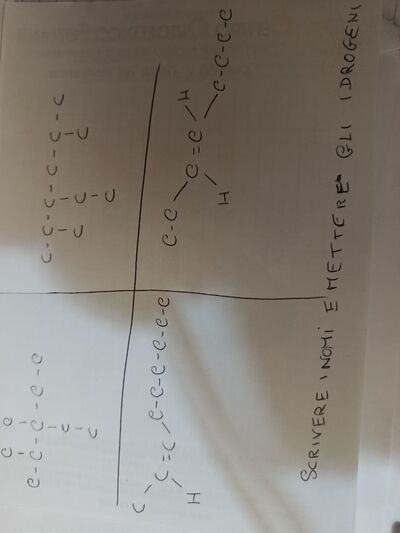 C C
C-C-C-C-C
C C
C
C-C-C-C-C-C-C
C C C
C
C
C=C
C-C-C-C-C-C
H
H
C-C C=C C-C-C-C
H
SCRIVERE I NOMI E METTERE GLI IDROGENI